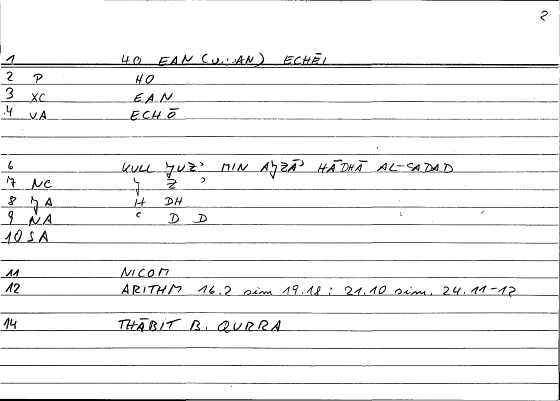 2
1 HO EAN (u.: AN) ECHĒI
2 P HO
3 XC EAN
4 VA ECHŌ
6 KULL JUZʾ MIN AJZĀʾ HĀDHĀ AL-ʿADAD
7 NC J Z ʾ
8 JA H DH
9 NA ʿ D D
10 SA
11 NICOM
12 ARITHM 16.2 sim 19.18; 21.10 sim. 24.11-12
14 THĀBIT B. QURRA